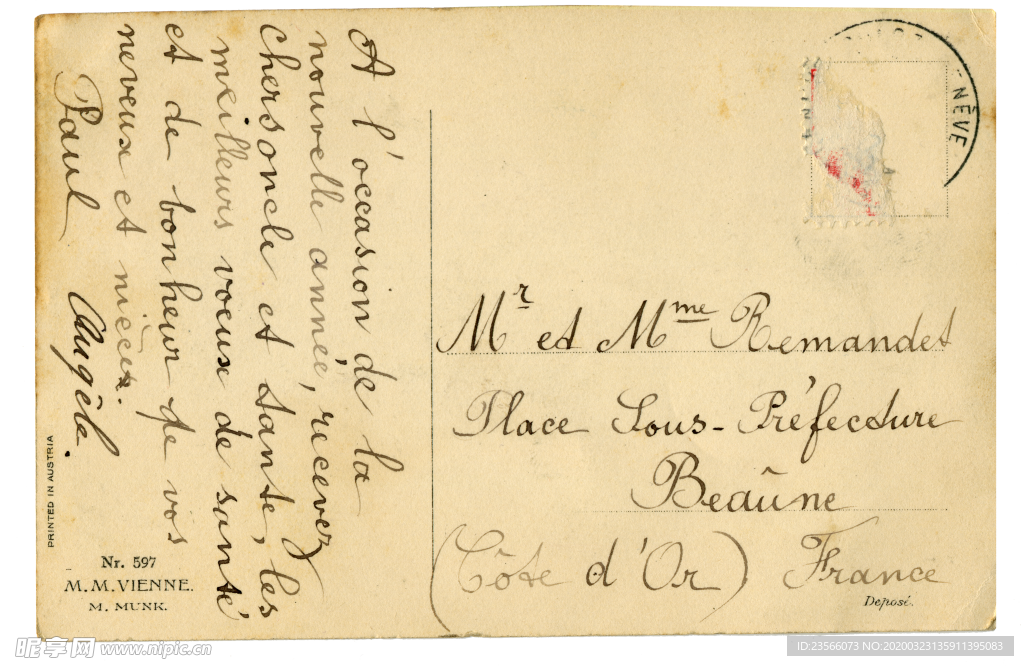 A l'occasion de la
nouvelle année, recevez
chers oncle et tante, les
meilleurs voeux de santé
et de bonheur de vos
neveux et nièces.
Paul Angèle.
Mr et Mme Remandet
Place Sous-Préfecture
Beaune
(Côte d'Or) France
Deposé.
ENÈVE
PRINTED IN AUSTRIA
Nr. 597
M. M. VIENNE.
M. MUNK.
昵享网 www.nipic.cn
ID:23566073 NO:20200323135911395083